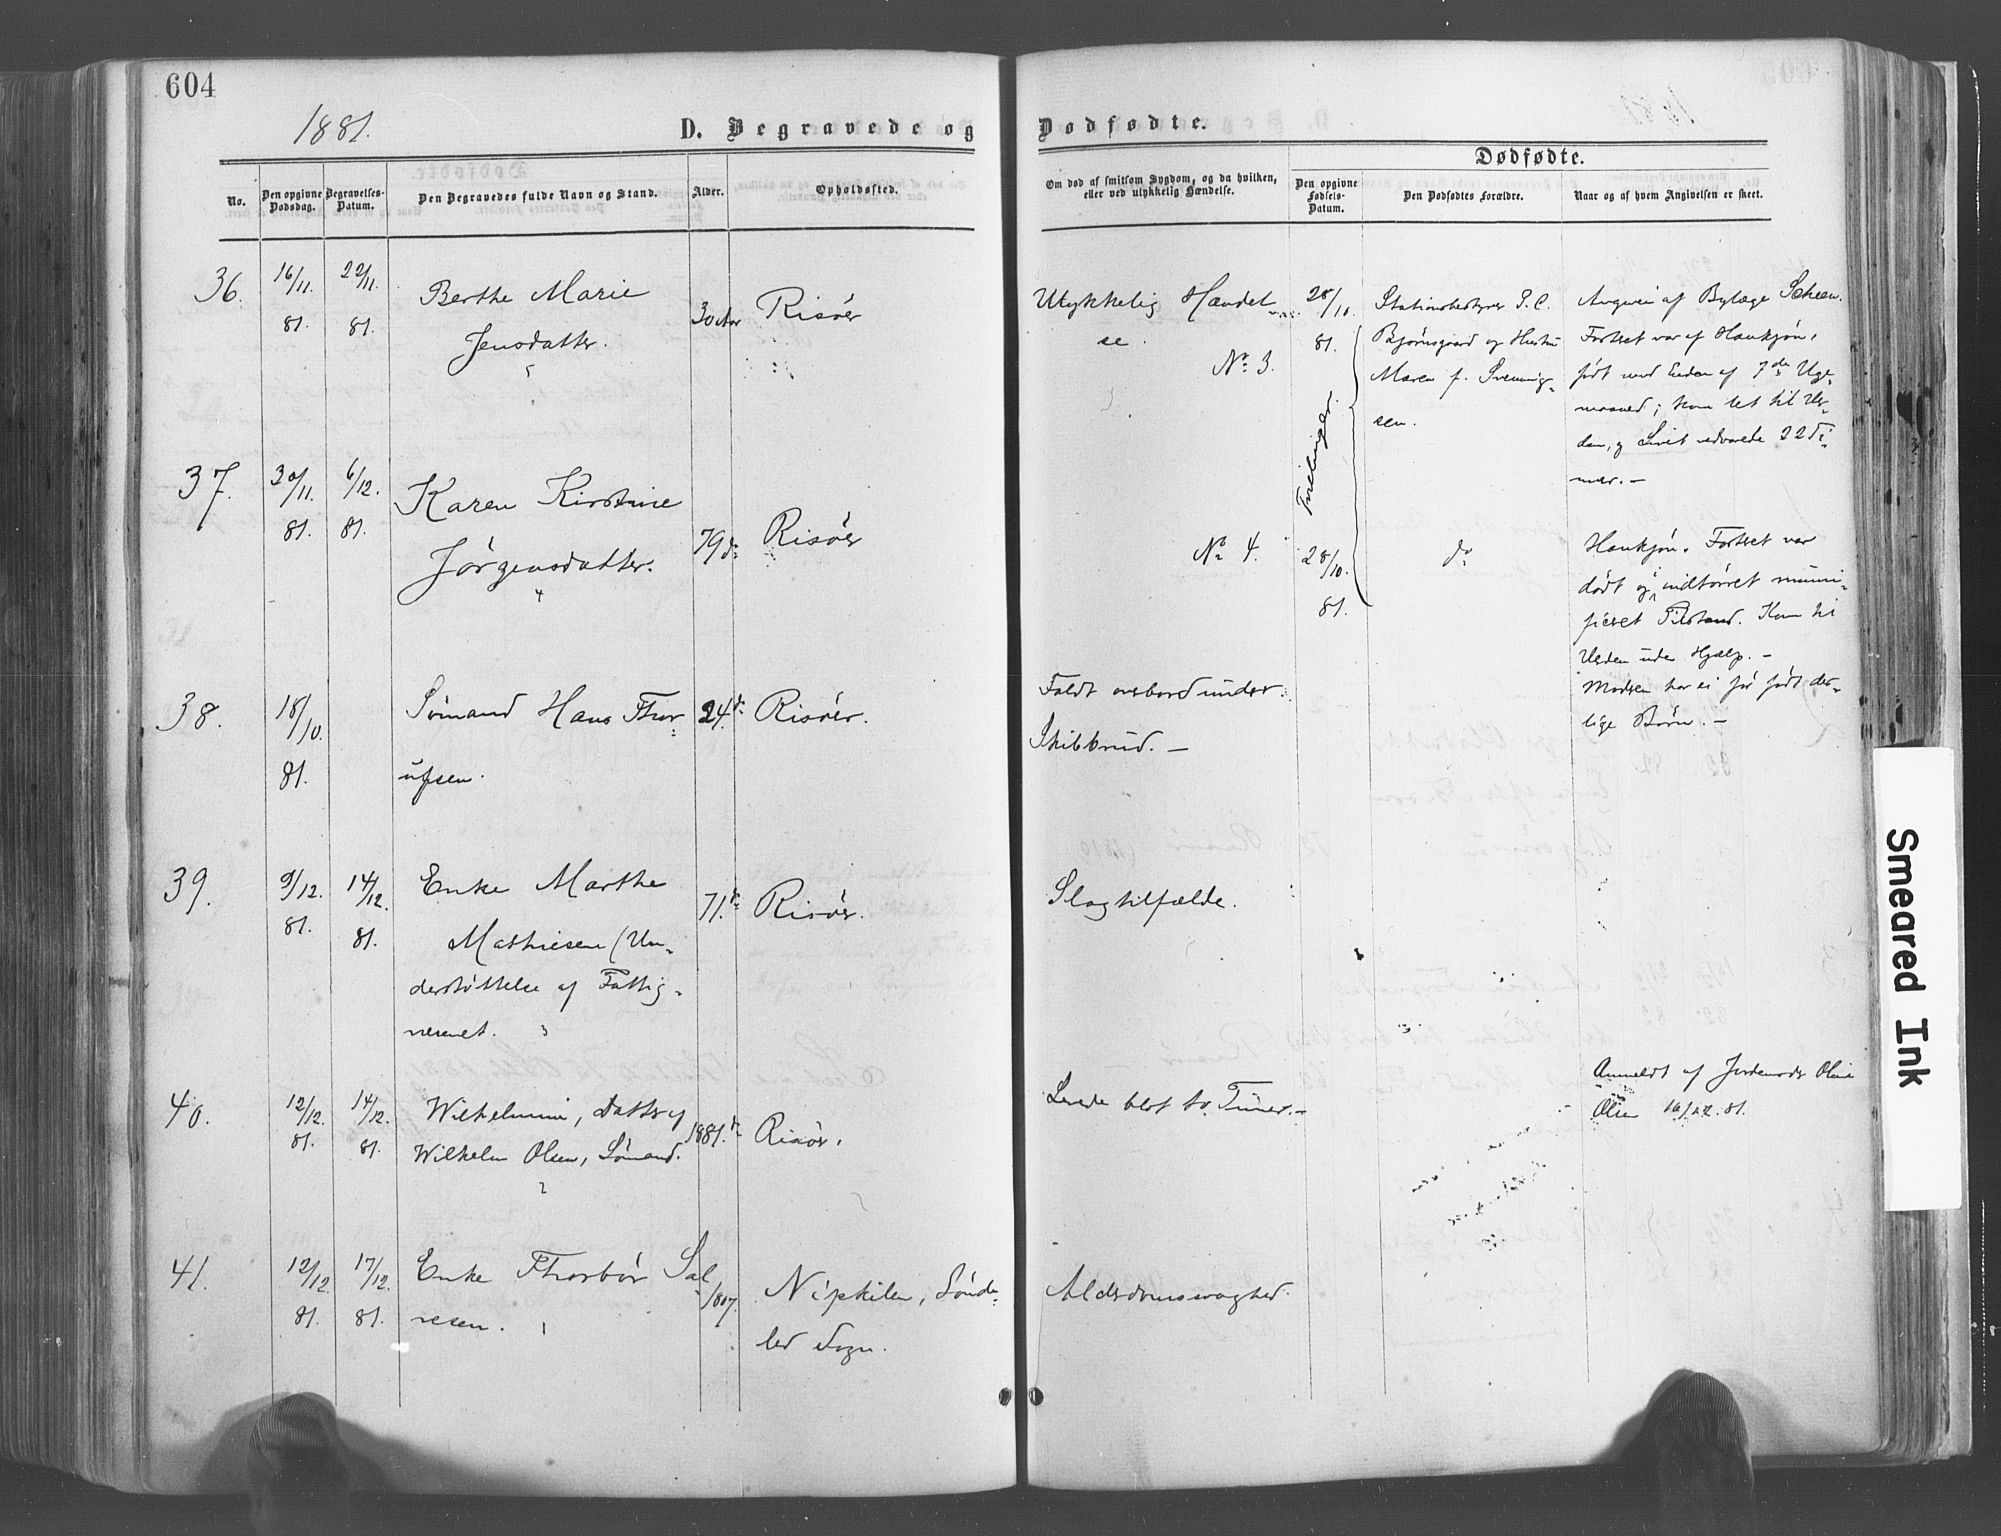 604
1881.
D. Begravede og
Dødfødte.
Dødfødte.
No.
Den opgivne Dødsdag.
Begravelses-Datum.
Den Begravedes fulde Navn og Stand.
Alder.
Opholdssted.
Om død af smitsom Sygdom, og da hvilken,
eller ved ulykkelig Hændelse.
Den opgivne Fødsels-Datum.
Den Dødfødtes Forældre.
Naar og af hvem Angivelsen er skeet.
36.
16/11.
81.
22/11.
81.
Berthe Marie
Jensdatter.
30 Aar
Risøer
Ulykkelig Hændel-
se.
No 3.
28/10
81.
Tvillinger.
Stationsbestyrer P. C.
Bjørnsgaard og Hustru
Maren f. Svennig-
sen.
af Bylæge
Fostret var af Hankjøn,
født ved Enden af 7de Uge-
maaned; kom let til Ver-
den, og Livet vedvarede 22 Ti-
mer. -
37.
30/11.
81.
6/12.
81.
Karen Kirstine
Jörgensdatter.
79 do
Risöer
No 4.
28/10.
81.
do
Hankjøn. Fostret var
dødt og i indtørret mumi-
ficeret Tilstand. Kom til
Verden uden Hjælp. -
Modren har ei før født der-
lige Börn. -
38.
18/10.
81.
Sömand Hans Thor-
ufsen.
24. do
Risöer.
Faldt overbord under
Skibbrud. -
39.
9/12.
81.
14/12.
81.
Enke Marthe
Mathiesen (Un-
derstöttelse af Fattig-
vesenet.
71. do
Risöer.
Slagtilfælde.
40.
12/12.
81.
14/12.
81.
Wilhelmine, Datter af
Wilhelm Olsen, Sömand.
1881. do
Risöer.
Levede blot to Timer. -
Anmeldt af Jordemoder Oline
Olsen 16/12. 81.
41.
12/12.
81.
17/12.
81.
Enke Thorbör Sal-
vesen.
1807.
Nipkilen, Sönde-
led Sogn.
Alderdomssvaghed.
Smeared Ink